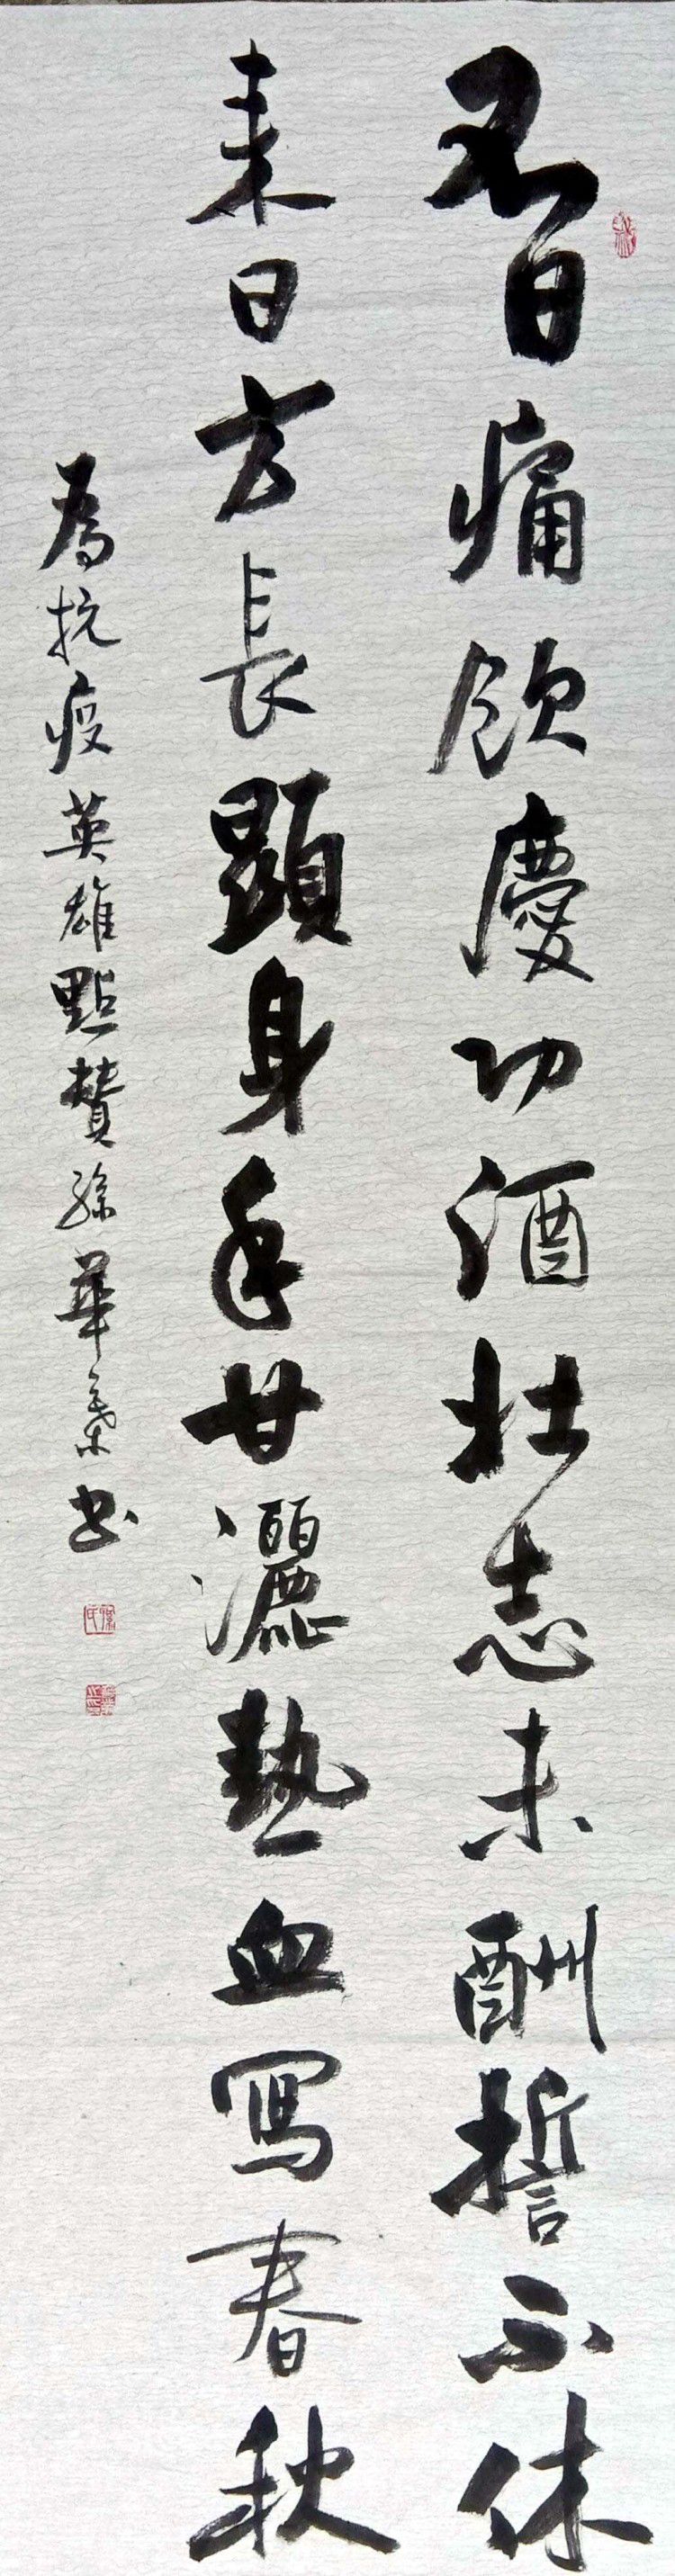 今日痛飲慶功酒壯志未酬誓不休
来日方長顯身手甘灑熱血寫春秋
為抗疫英雄點贊孫華書